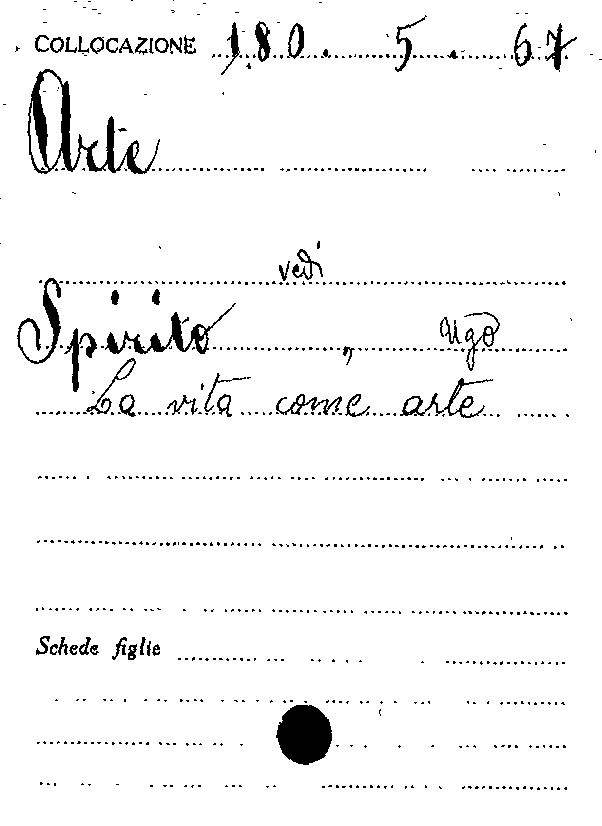 COLLOCAZIONE 180. 5. 67
Arte
vedi
Spirito, Ugo
La vita come arte
Schede figlie